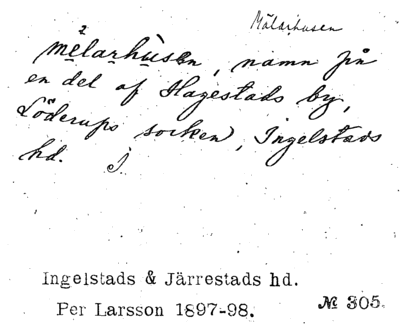 Mälarhusen
mèlarhùsen, namn på
en del af Hagestads by,
Löderups socken, Ingelstads
hd.
Ingelstads & Järrestads hd.
Per Larsson 1897-98.
№ 305.